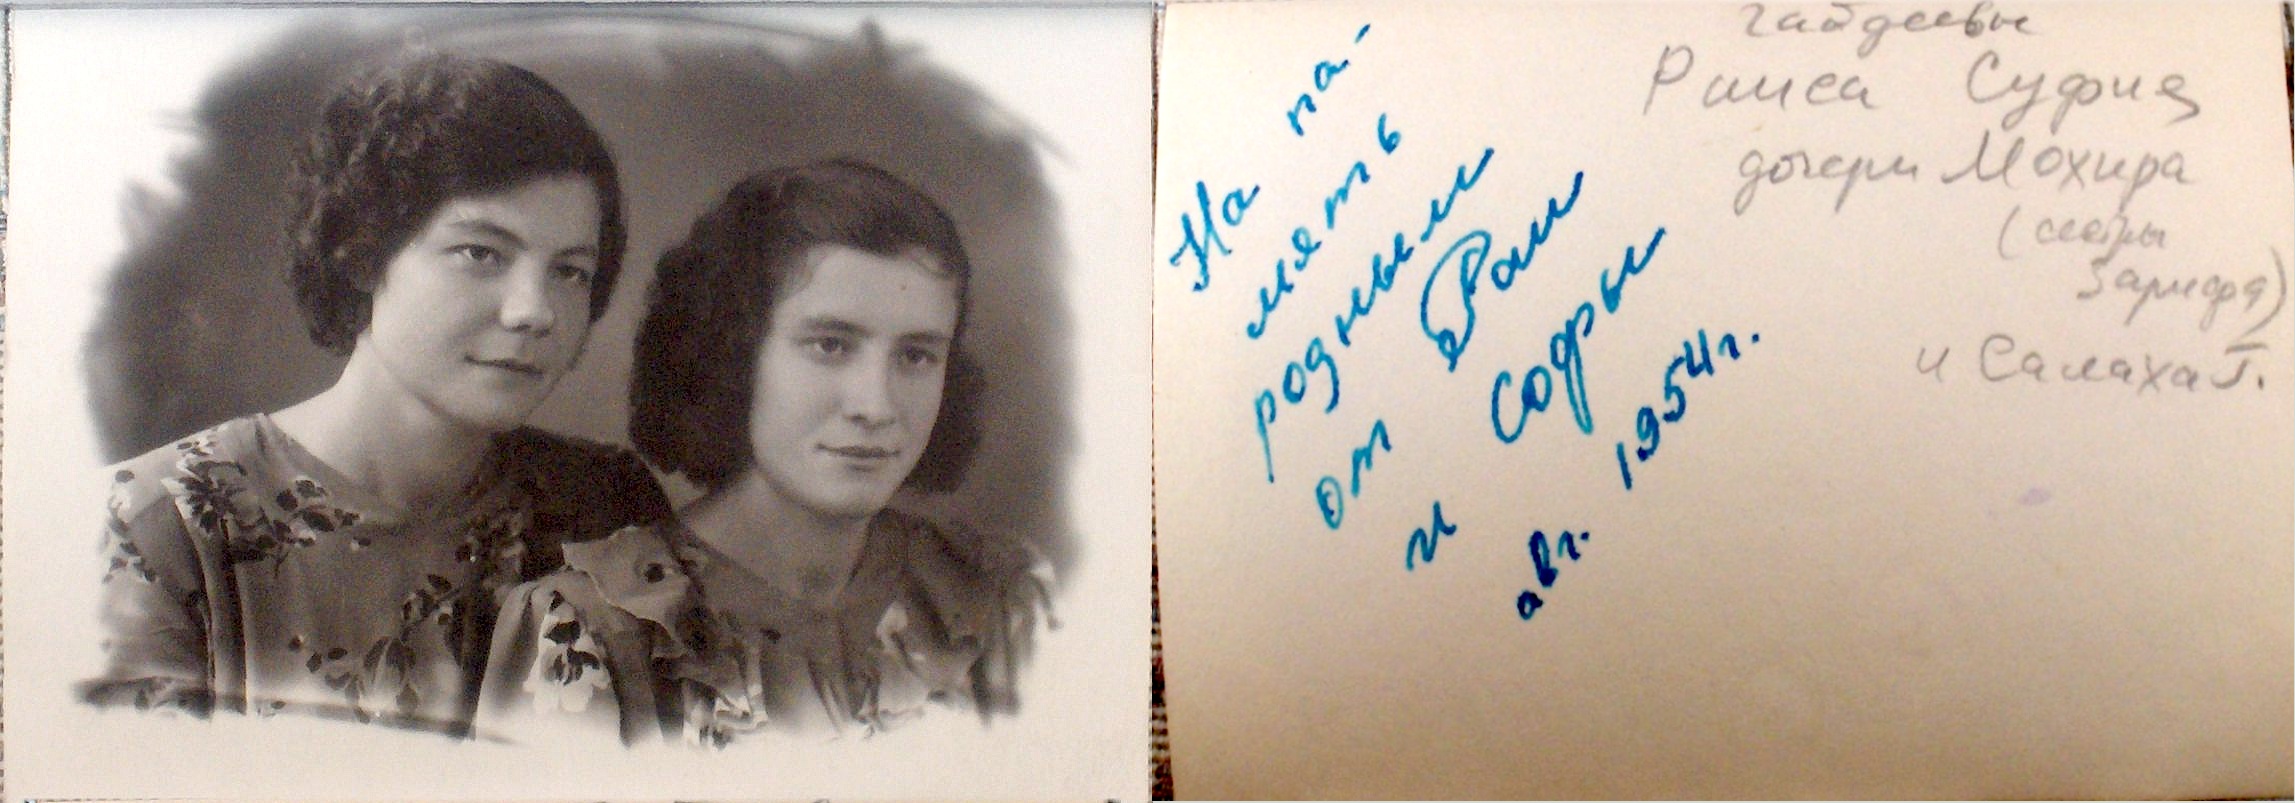 На па-
мять
родным
от Раи
и Софы
авг. 1954г.
гайдеевы
Раиса Суфия
дочери Мохира
(сестры
Зарифа)
и Салаха Г.